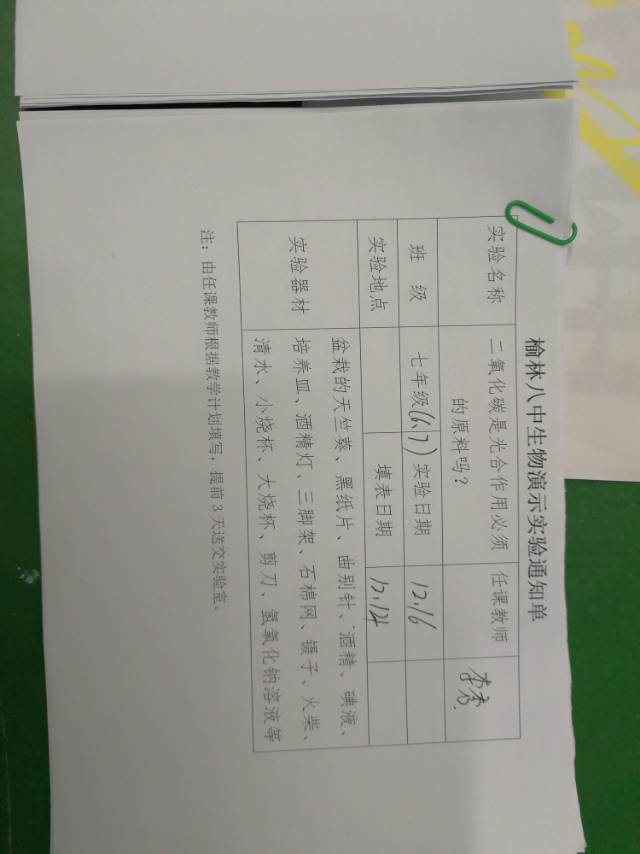 榆林八中生物演示实验通知单
实验名称 二氧化碳是光合作用必须的原料吗? 任课教师 李秀
班 级 七年级(6、7) 实验日期 12.16
实验地点 填表日期 12.14
实验器材
盆栽的天竺葵、黑纸片、曲别针、酒精、碘液、
培养皿、酒精灯、三脚架、石棉网、镊子、火柴、
清水、小烧杯、大烧杯、剪刀、氢氧化钠溶液等
注：由任课教师根据教学计划填写，提前 3 天送交实验室。